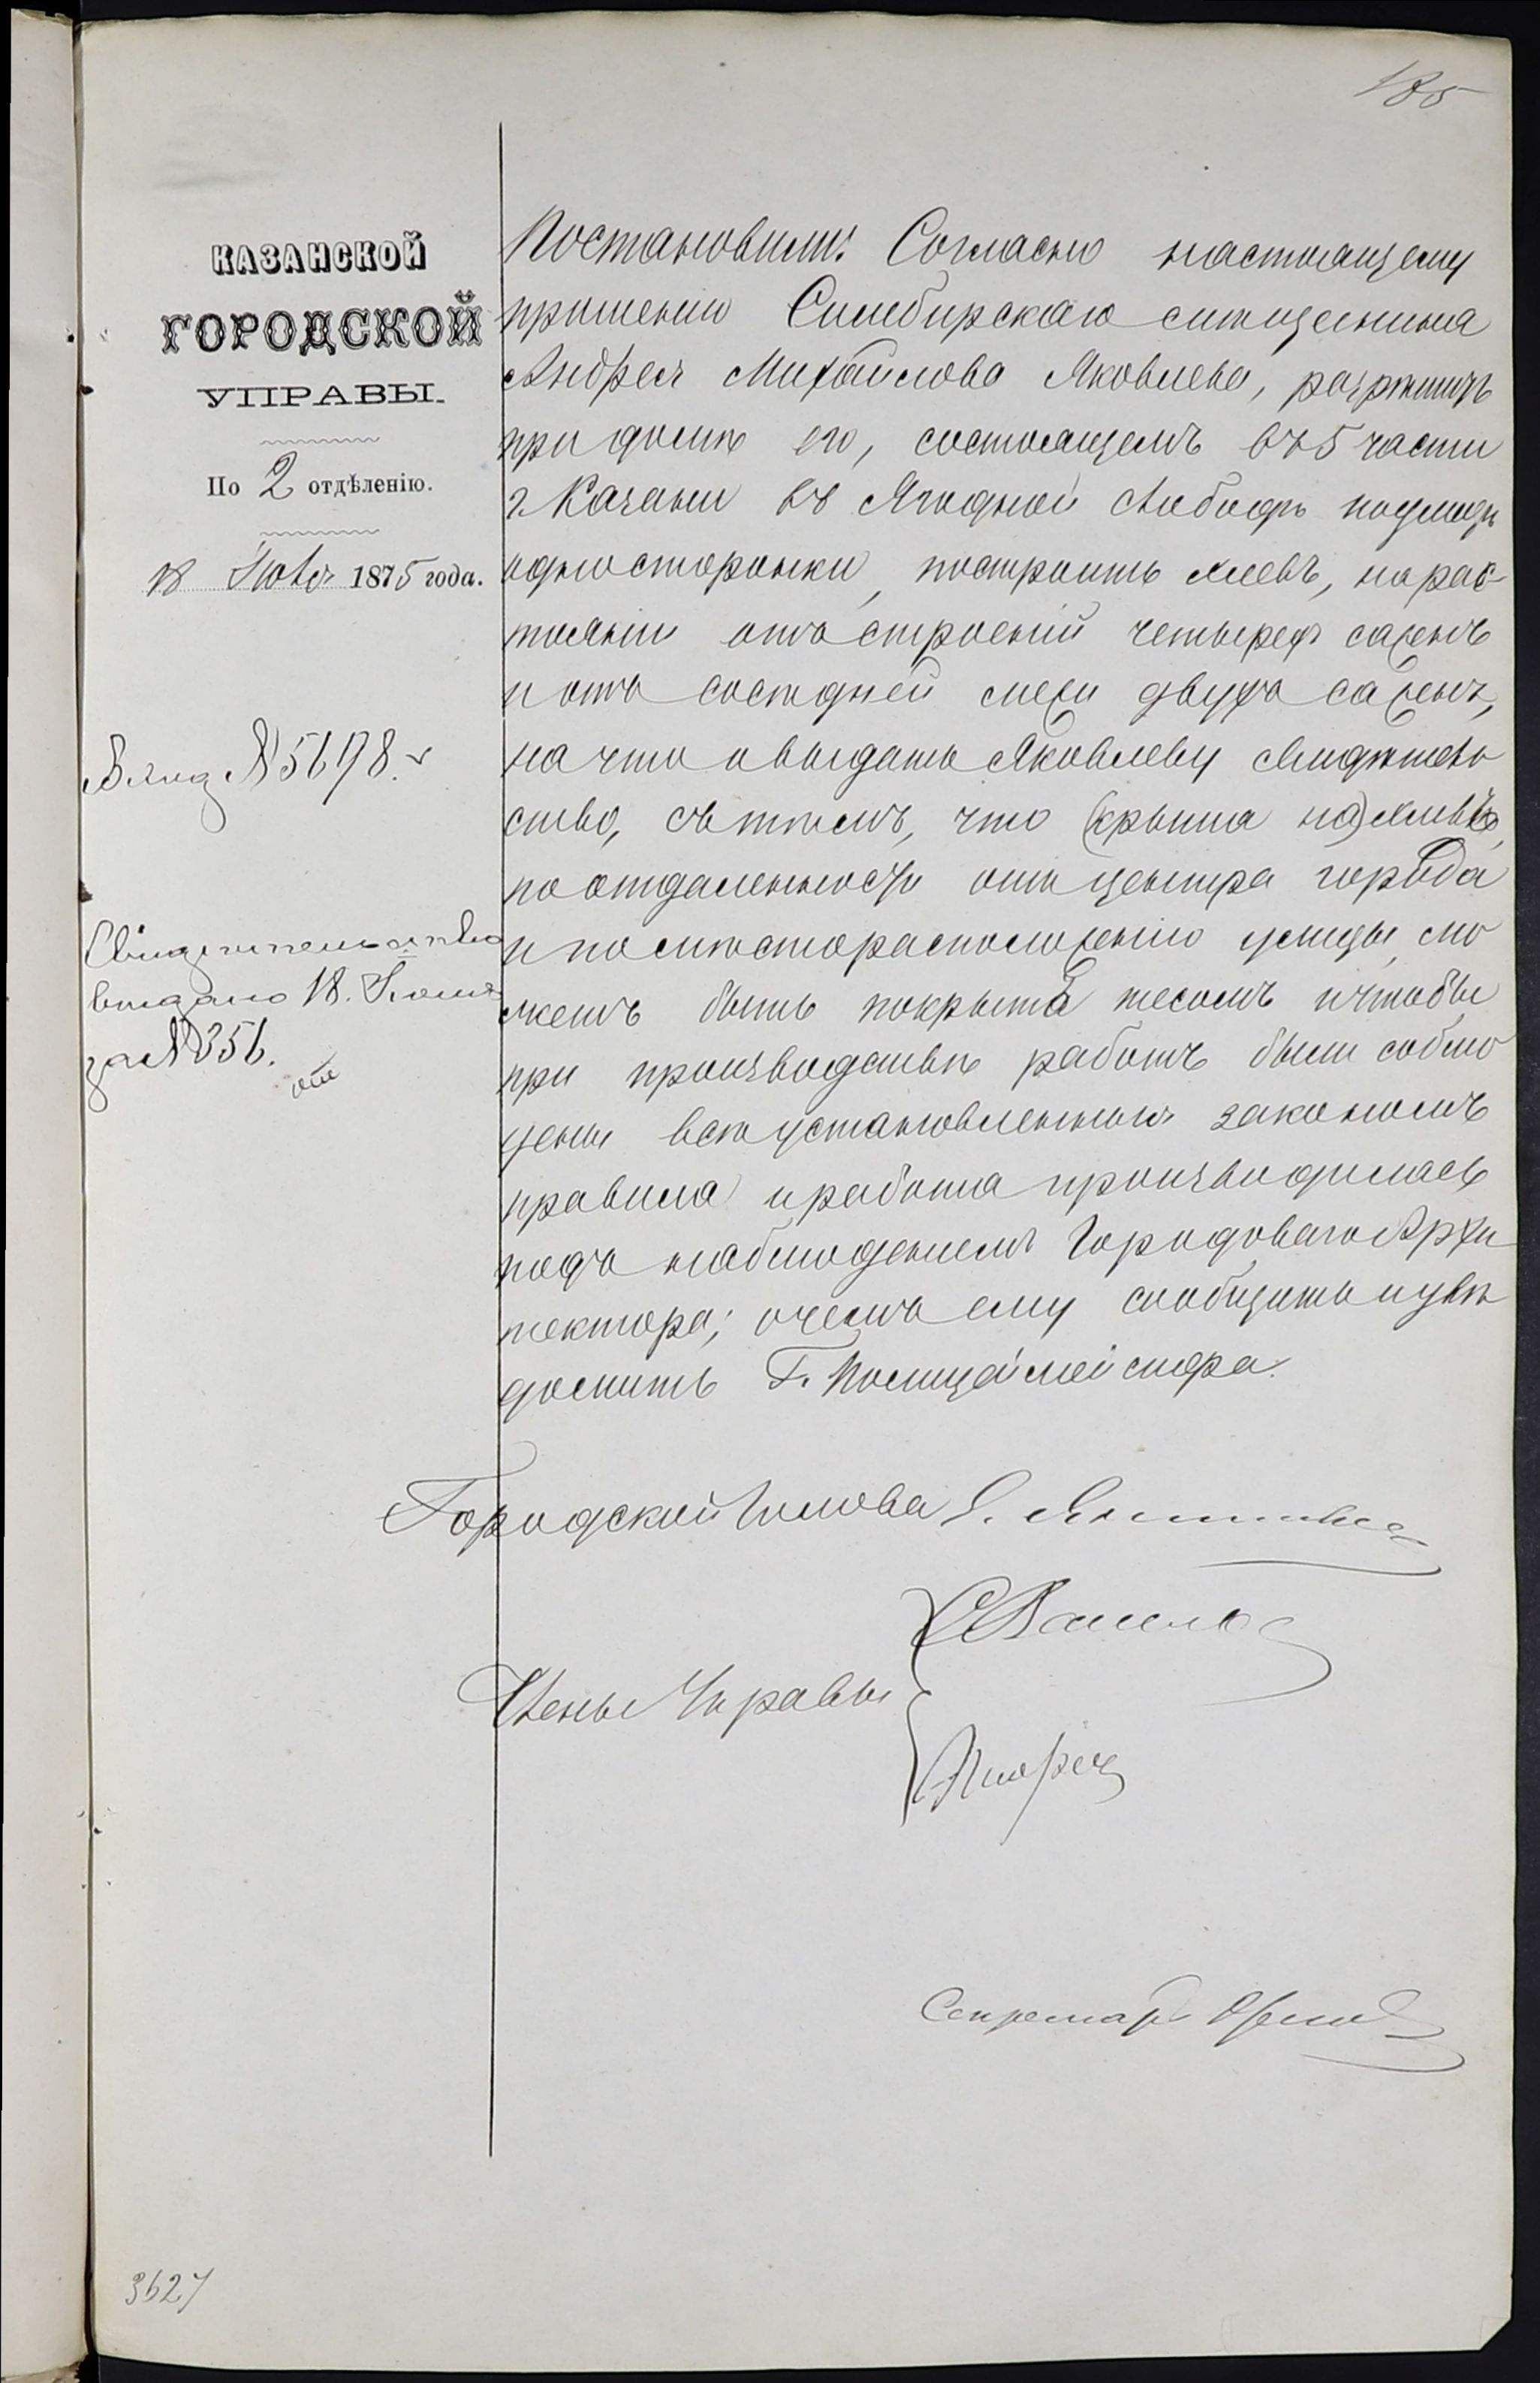 185
КАЗАНСКОЙ
ГОРОДСКОЙ
УПРАВЫ.
По 2 отдѣленію.
18 Іюня 1875 года.
В вход № 5698.
Свидѣтельство
выдано 18. Іюня
за № 356.
Постановили: Согласно настоящему
прошенію Симбирскаго мѣщанина
Андрея Михайлова Яковлева, разрѣшить
при домѣ его, состоящемъ въ 5 части
г. Казани въ Ягодной слободѣ
построить хлевъ, на рас-
тояніи отъ строеній четырехъ саженъ
и отъ сосѣдней межи двухъ саженъ,
на что и выдать Яковлеву свидѣтель
ство, съ тѣмъ, что (крыша на) хлевѣ,
по отдаленности отъ центра города
и по мѣсторасположенію улицы, мо
жетъ быть покрыта тесомъ и чтобы
при производствѣ работъ были соблю
дены всѣ установленныя закономъ
правила и работа производилась
подъ наблюденіемъ Городоваго Архи
тектора; о чемъ ему сообщить и увѣ
домить Г. Полицеймейстера.
Городской Голова Э. Янишевскій
Члены Управы
Секретарь Орлов
3627